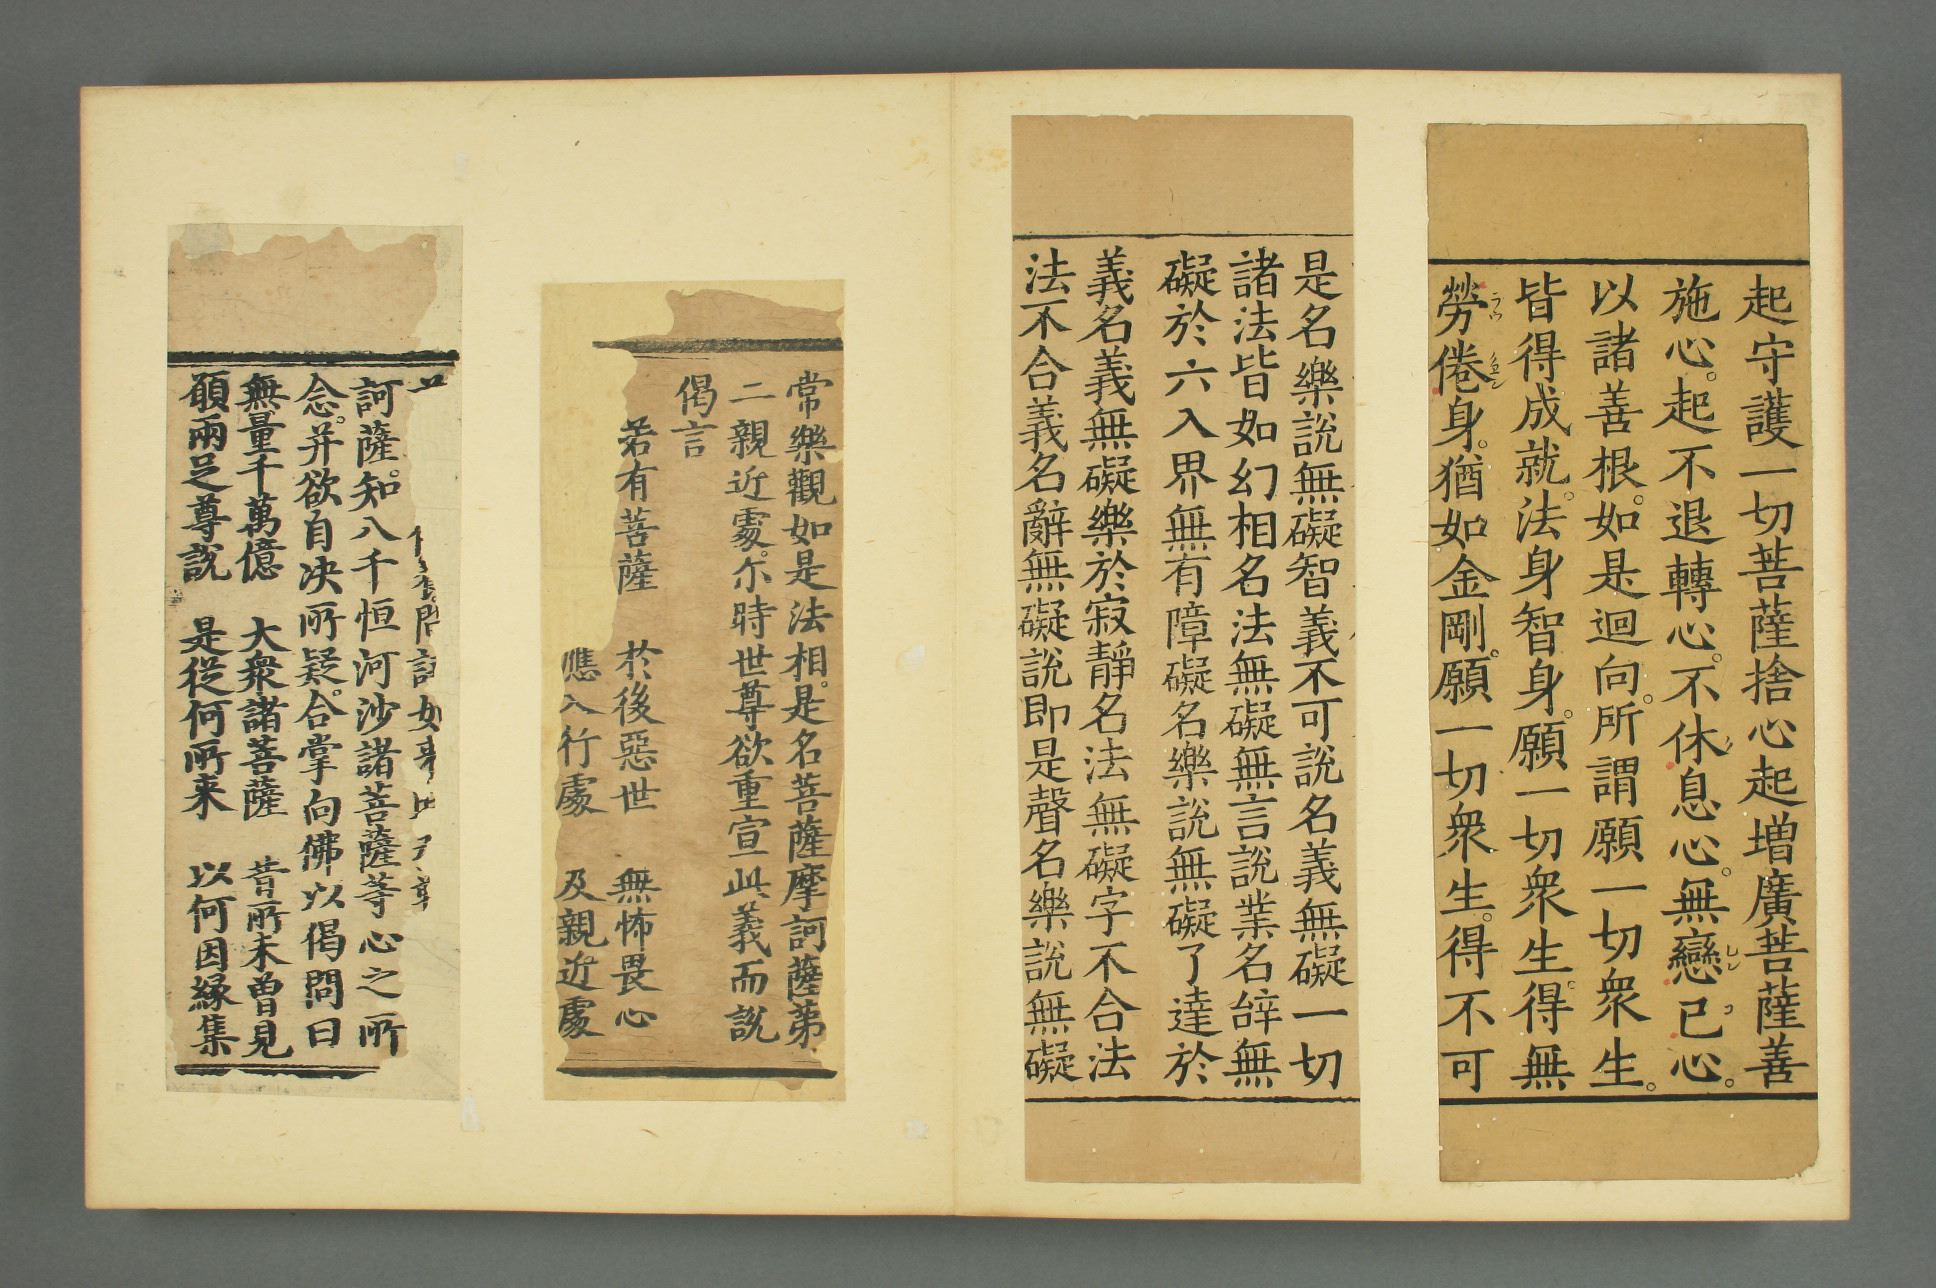 起守護一切菩薩捨心起增廣菩薩善
施心。起不退轉心。不休息心。無戀已心。
以諸善根。如是迴向。所謂願一切衆生。
皆得成就。法身智身。願一切衆生。得無
勞倦身。猶如金剛。願一切衆生。得不可
是名樂說無礙智義不可說名義無礙一切
諸法皆如幻相名法無礙無言說業名辝無
礙於六入界無有障礙名樂說無礙了達於
義名義無礙樂於寂靜名法無礙字不合法
法不合義名辭無礙說即是聲名樂說無礙
常樂觀如是法相。是名菩薩摩訶薩苐
二親近處。尒時世尊欲重宣此義而說
偈言
若有菩薩　於後惡世　無怖畏心
應入行處　及親近處
訶薩。知八千恒河沙諸菩薩等心之所
念。并欲自決所疑。合掌向佛以偈問曰
無量千萬億　大衆諸菩薩　昔所未曾見
願兩足尊說　是從何所来　以何因緣集